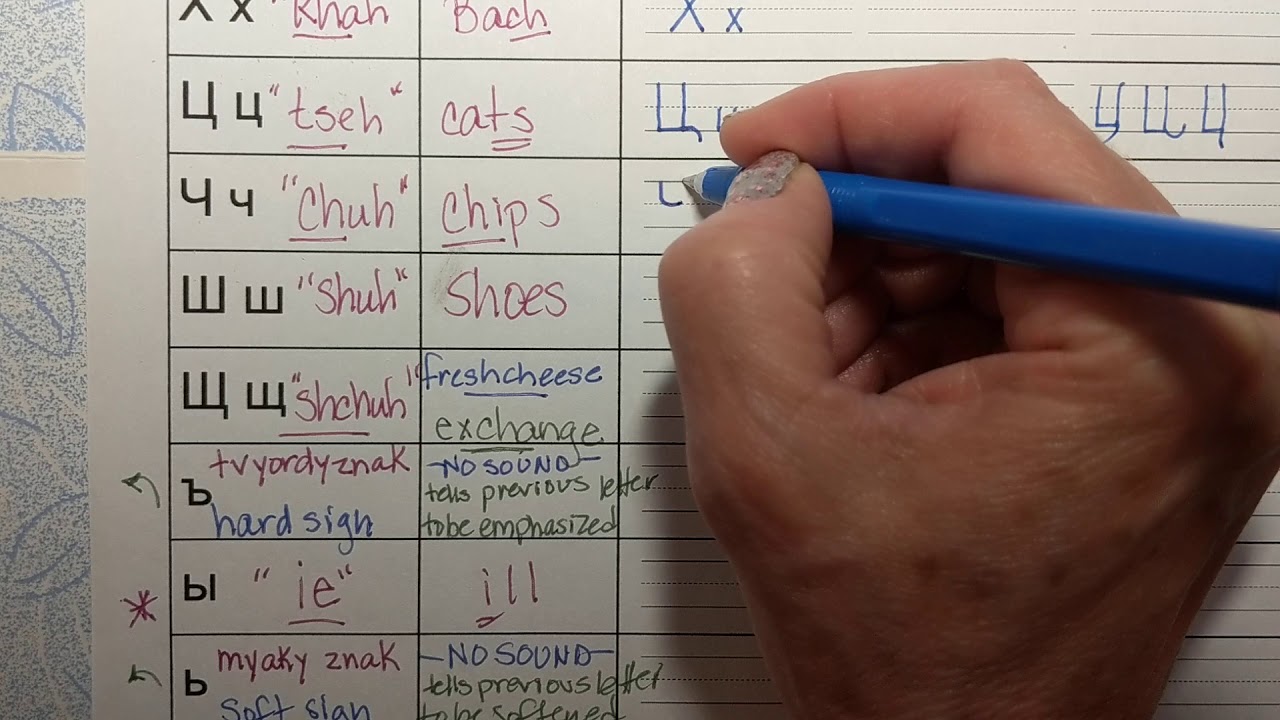 Х х "Khah Bach Х х
Ц ц "tseh" cats Ц Ц Ц Ц
Ч ч "Chuh" chips
Ш ш "Shuh" Shoes
Щ щ "shchuh" freshcheese
exchange
tvyordyznak -NO SOUND-
ъ tells previous letter
hard sign to be emphasized
ы "ie" ill
myaky znak -NO SOUND-
ь tells previous letter
soft sign to be softened